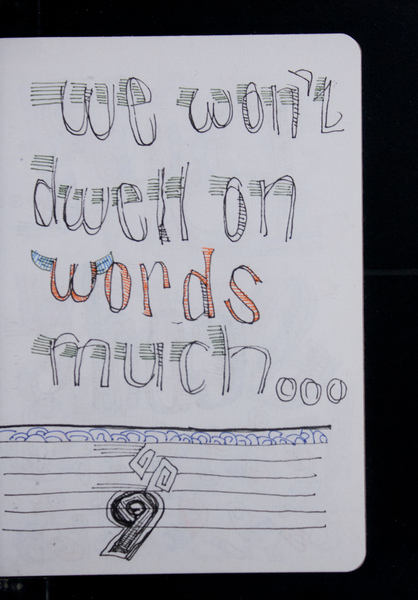 we won't
dwell on
words
much...